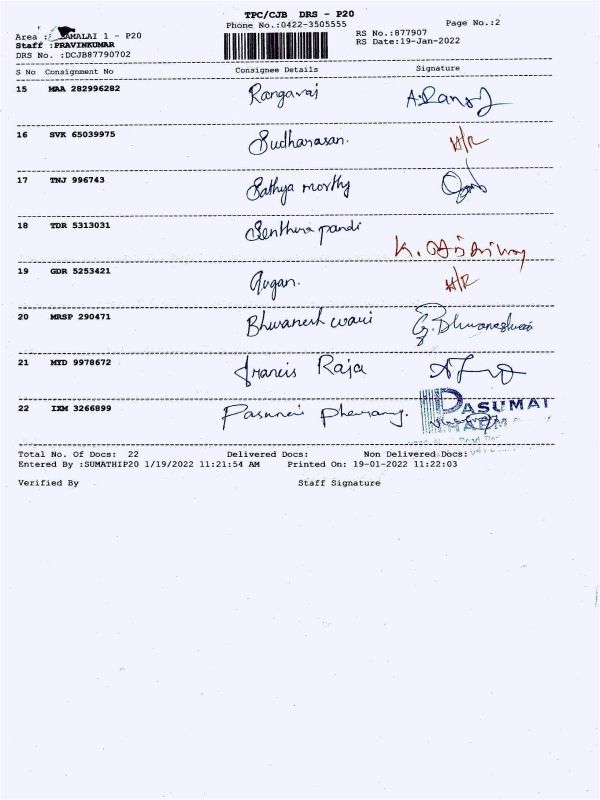 TPC/CJB DRS - P20
Phone No.:0422-3505555
Page No.:2
Area : AMALAI 1 - P20
RS No.:877907
Staff :PRAVINKUMAR
RS Date:19-Jan-2022
DRS No. :DCJB87790702
S No Consignment No Consignee Details Signature
15 MAA 282996282 Rangaraj
16 SVK 65039975 Sudharasan.
17 TNJ 996743 Sathya morthy
18 TDR 5313031 Senthura pandi
19 GDR 5253421 Gugan.
20 MRSP 290471 Bhuvanesh wari G. Bhuvaneshwari
21 MYD 9978672 Francis Raja
22 IXM 3266899 PASUMAI
Total No. Of Docs: 22 Delivered Docs: Non Delivered Docs:
Entered By :SUMATHIP20 1/19/2022 11:21:54 AM Printed On: 19-01-2022 11:22:03
Verified By Staff Signature